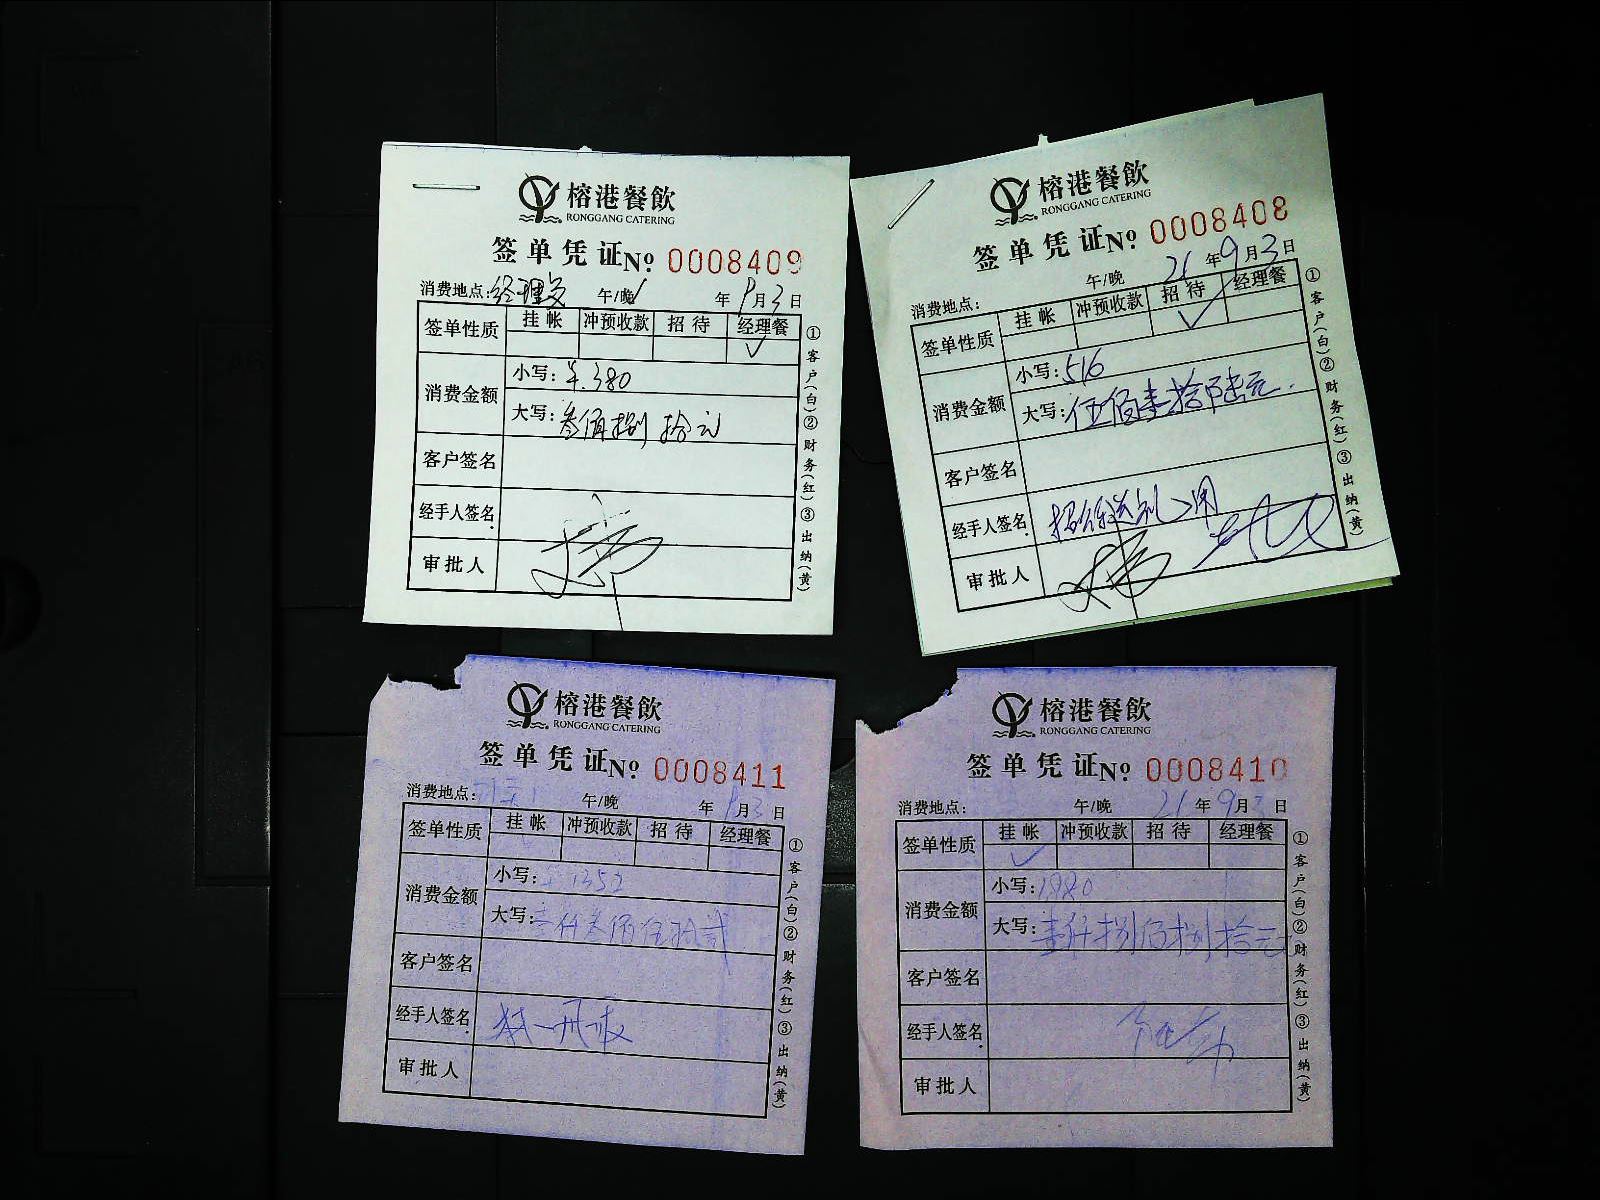 榕港餐飲
RONGGANG CATERING
签单凭证 No 0008409
消费地点: 午/晚 年 9月3日
签单性质 挂帐 冲预收款 招待 经理餐
✓
消费金额 小写: ¥.380
大写: 叁佰捌拾元
客户签名
经手人签名
审批人
①客户(白)②财务(红)③出纳(黄)
榕港餐飲
RONGGANG CATERING
签单凭证 No 0008408
消费地点: 午/晚 21年9月3日
签单性质 挂帐 冲预收款 招待 经理餐
✓
消费金额 小写: 516
大写: 伍佰壹拾陆元.
客户签名
经手人签名
审批人
①客户(白)②财务(红)③出纳(黄)
榕港餐飲
RONGGANG CATERING
签单凭证 No 0008411
消费地点: 午/晚 年 9月3日
签单性质 挂帐 冲预收款 招待 经理餐
消费金额 小写: 1352
大写: 壹仟叁佰伍拾贰
客户签名
经手人签名
审批人
①客户(白)②财务(红)③出纳(黄)
榕港餐飲
RONGGANG CATERING
签单凭证 No 0008410
消费地点: 午/晚 21年9月 日
签单性质 挂帐 冲预收款 招待 经理餐
✓
消费金额 小写: 1880
大写: 壹仟捌佰捌拾元
客户签名
经手人签名
审批人
①客户(白)②财务(红)③出纳(黄)